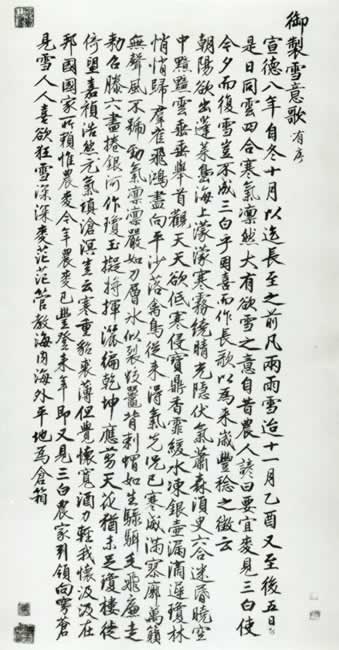 御製雪意歌 有序
宣德八年自冬十月以迄長至之前凡兩雨雪迨十一月乙酉又至後五日
是日同雲四合寒氣凜然大有欲雪之意自昔農人諺曰要宜麥見三白使
今夕而復雪豈不成三白乎因喜而作長歌以為来歲豐稔之徵云
朝陽欲出蓬萊島海上濛濛寒霧繞晴光隱伏氣蕭森須臾六合迷昏曉空
中黯黮雲垂垂舉首觀天天欲低寒侵寶鼎香霏緩水凍銀壺漏滴遲瓊林
悄悄歸羣雀飛鴻盡向平沙落禽鳥從来得氣先況已寒威滿寥廓萬籟
無聲風不號勁氣凜凜嚴如刀層冰似裂蛟鼉背刺帽如生毛飛廉走
勑召滕六盡捲銀河作瓊玉擬將揮灑徧乾坤應剪天花猶未足瓊樓徙
倚望嘉禎浩然元氣塡滄溟豈云寒重貂裘薄但覺懷寬酒力輕我懷汲汲在
邦國國家所賴惟農麥今年農麥已豐登来年即又見三白農家引領向穹蒼
見雪人人喜欲狂雪深深麥茫茫管教海內海外平地為倉箱